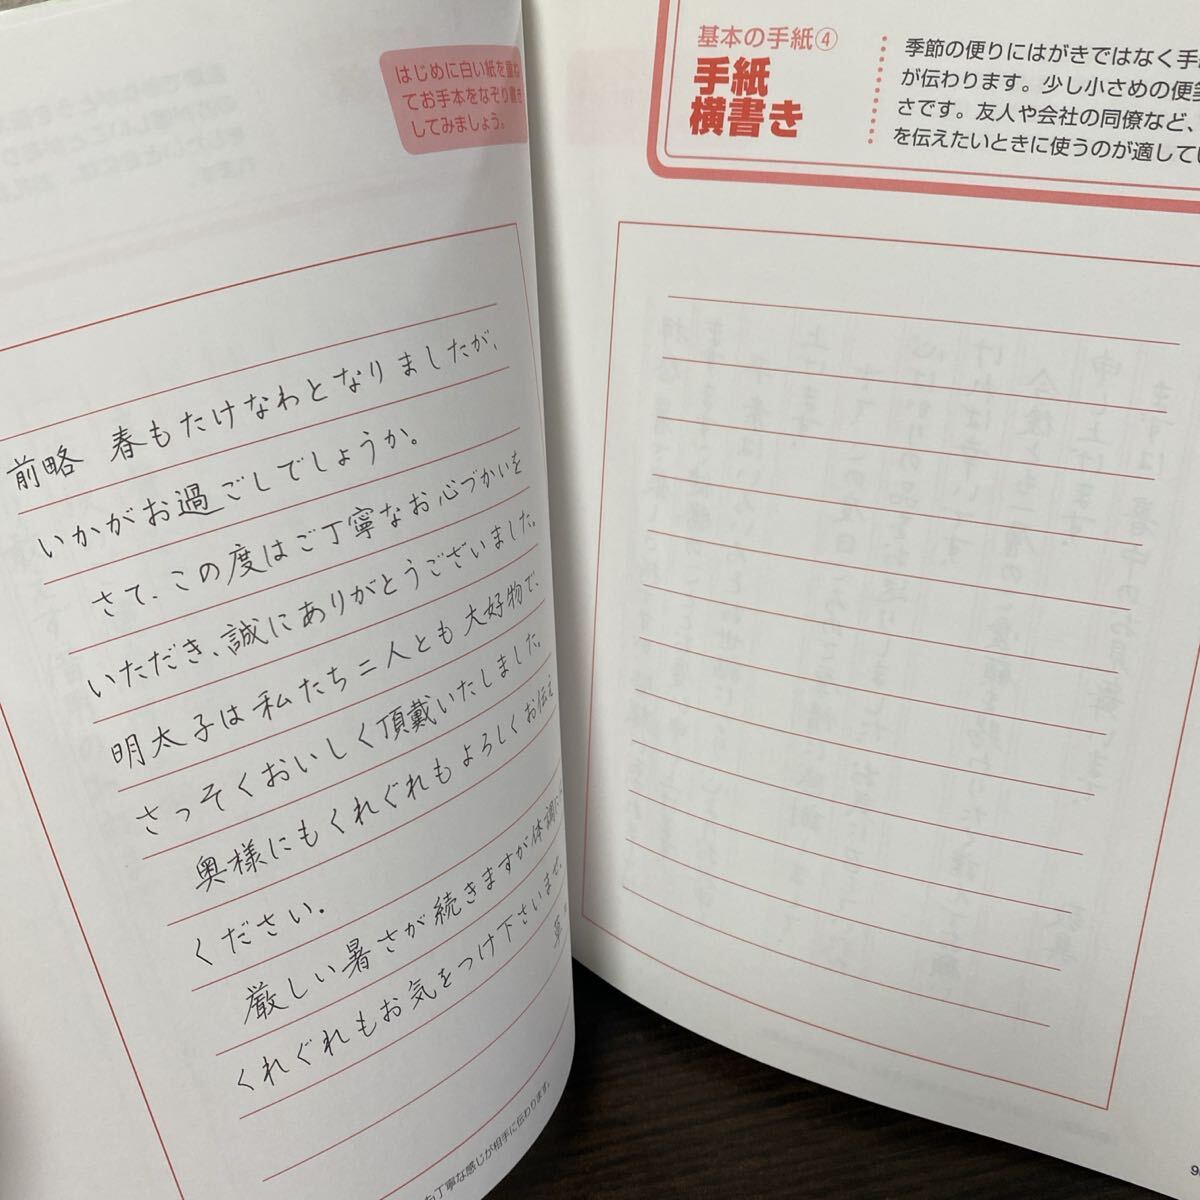 はじめに白い紙を重ね
てお手本をなぞり書き
してみましょう。
前略 春もたけなわとなりましたが、
いかがお過ごしでしょうか。
さて、この度はご丁寧なお心づかいを
いただき、誠にありがとうございました。
明太子は私たち二人とも大好物で、
さっそくおいしく頂戴いたしました。
奥様にもくれぐれもよろしくお伝え
ください。
厳しい暑さが続きますが体調に
くれぐれもお気をつけ下さいませ。
草
丁寧な感じが相手に伝わります。
基本の手紙④
手紙
横書き
季節の便りにはがきではなく手
が伝わります。少し小さめの便箋
さです。友人や会社の同僚など、
を伝えたいときに使うのが適してい